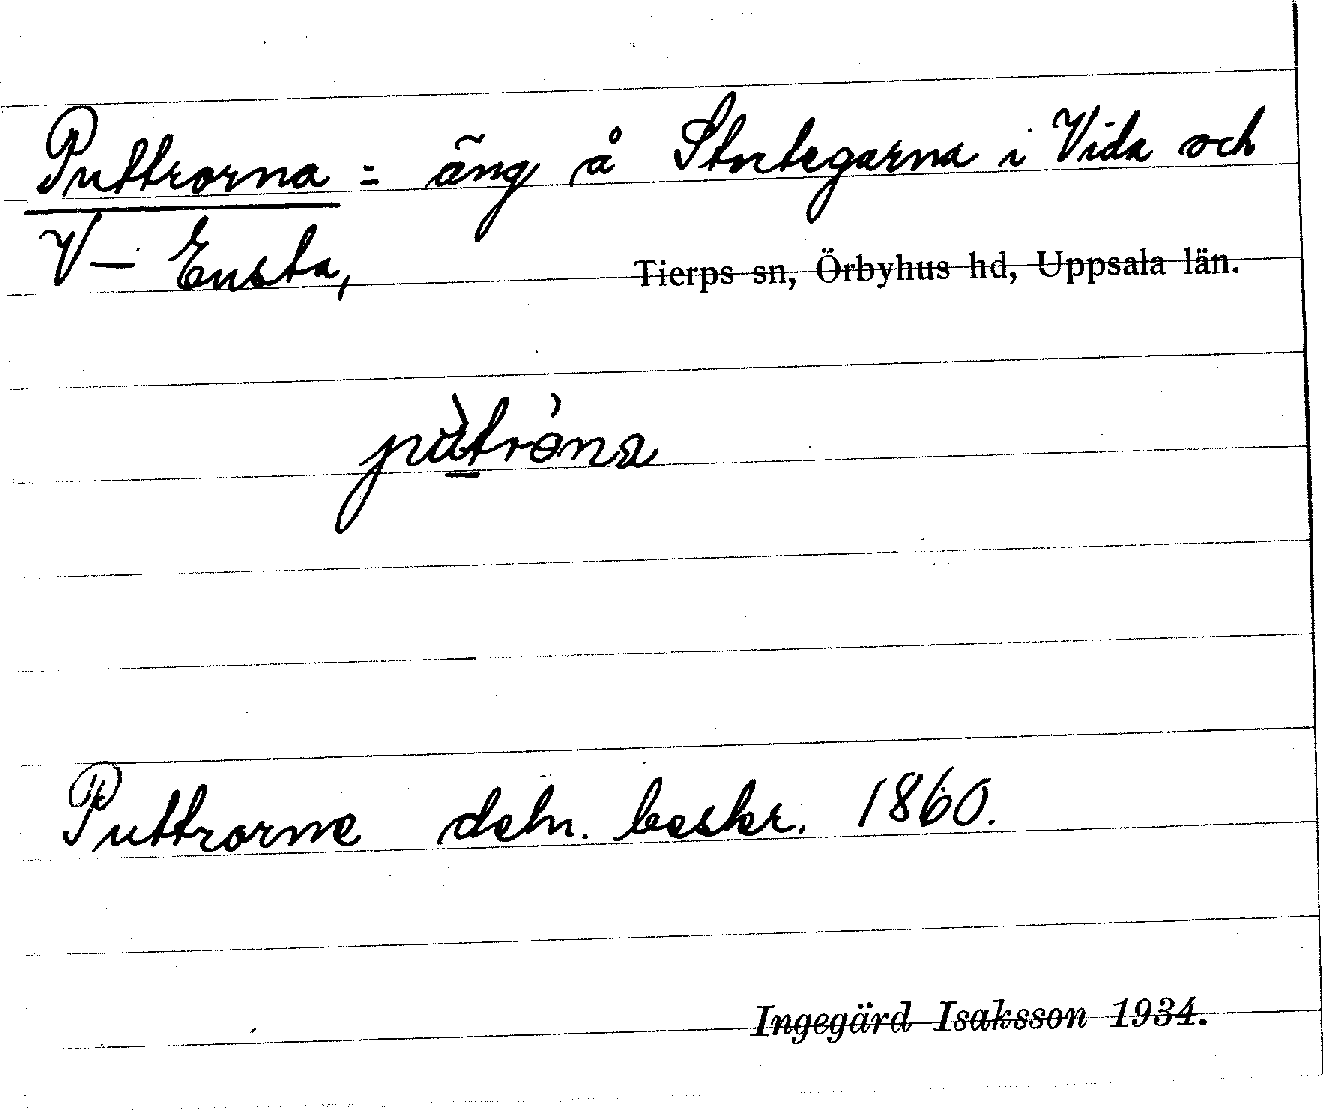 Puttrorna = äng å Stortegarna i Vida och
V- Ensta,
Tierps sn, Örbyhus hd, Uppsala län.
pùtròna
Puttrorne deln. beskr. 1860.
Ingegärd Isaksson 1934.